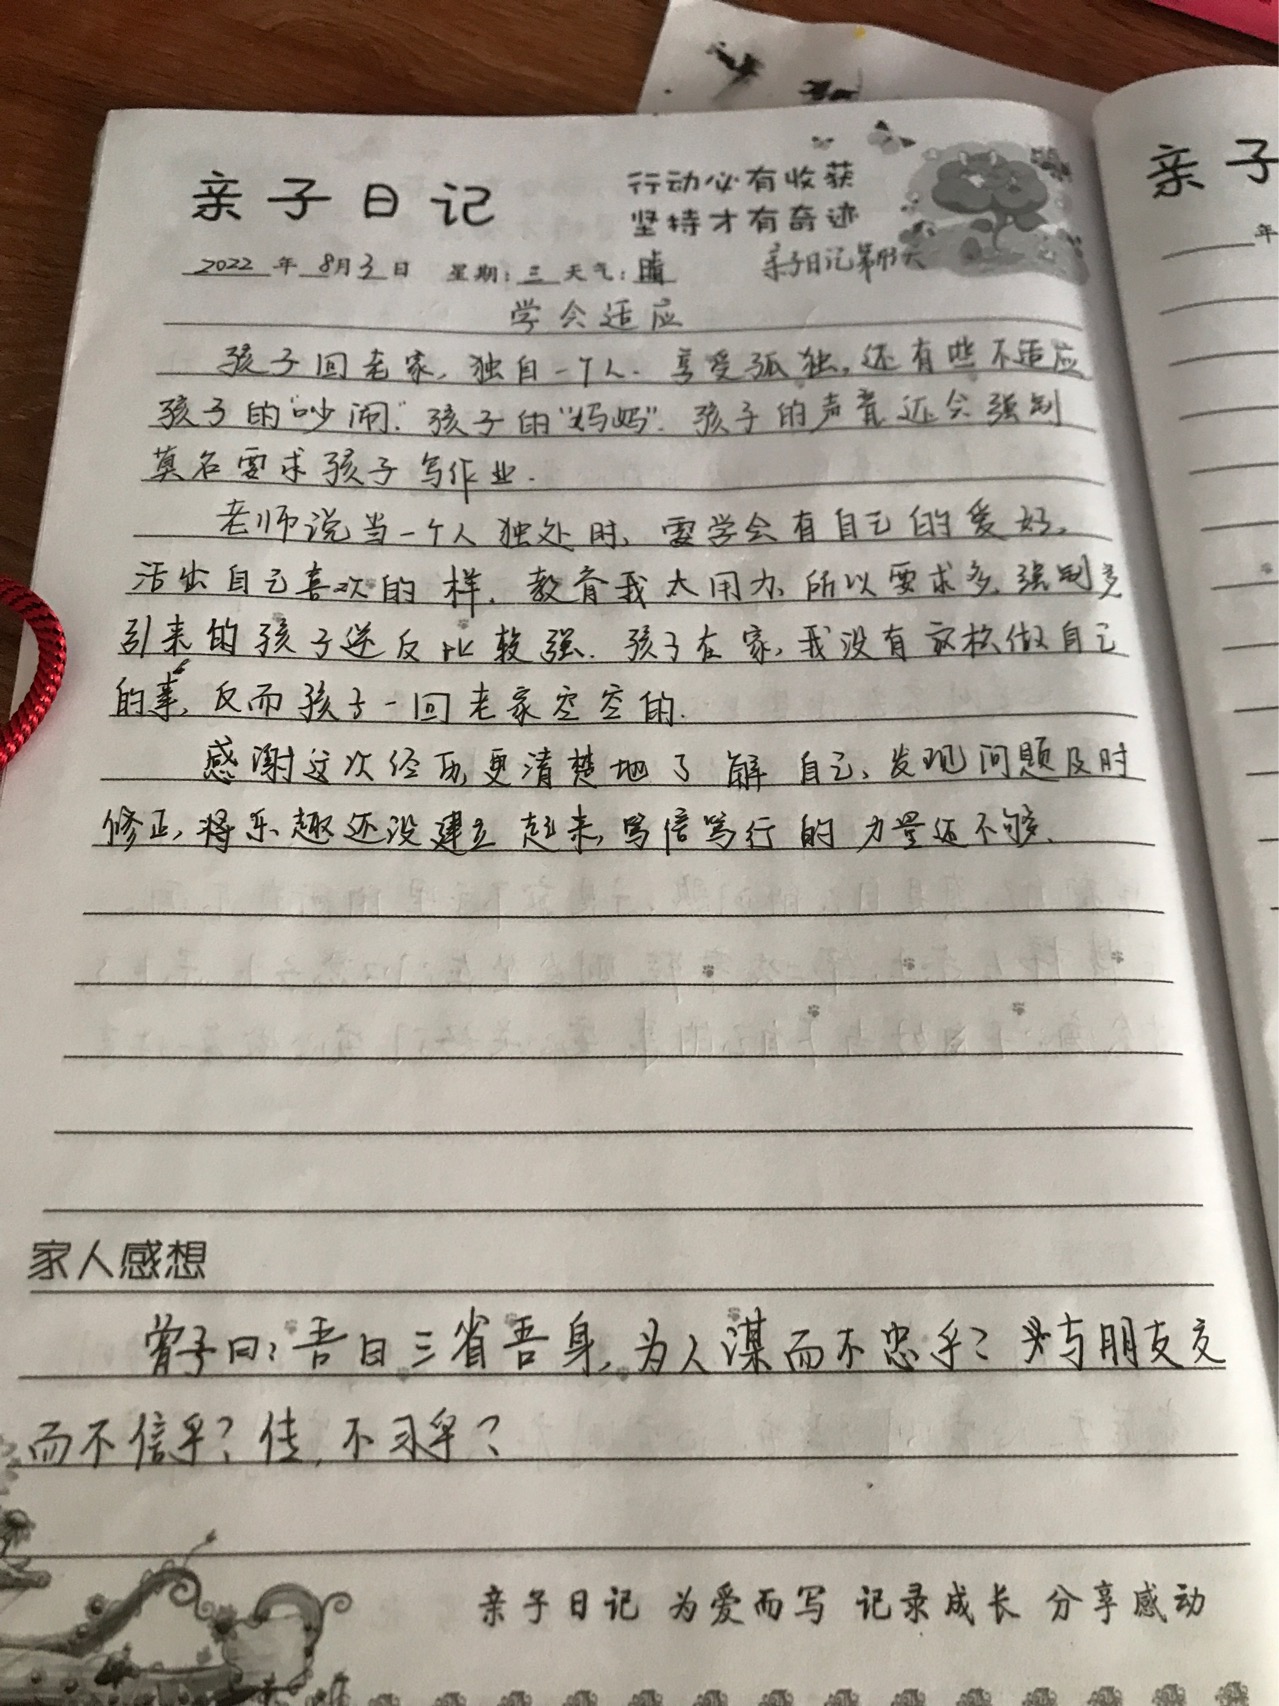 亲子日记
行动必有收获
坚持才有奇迹
2022年 8月3日 星期:三 天气:晴 亲子日记第 天
学会适应
孩子回老家,独自一个人.享受孤独,还有些不适应
孩子的"吵闹".孩子的"妈妈".孩子的声音还会强制
莫名要求孩子写作业.
老师说当一个人独处时,要学会有自己的爱好,
活出自己喜欢的样.教育我太用力,所以要求多,强制多
引来的孩子逆反比较强.孩子在家,我没有 做自己
的事,反而孩子一回老家空空的.
感谢这次经历,更清楚地了解自己,发现问题及时
修正,将乐趣还没建立起来,笃信笃行的力量还不够.
家人感想
曾子曰:吾日三省吾身,为人谋而不忠乎?与朋友交
而不信乎?传,不习乎?
亲子日记 为爱而写 记录成长 分享感动
亲子
年